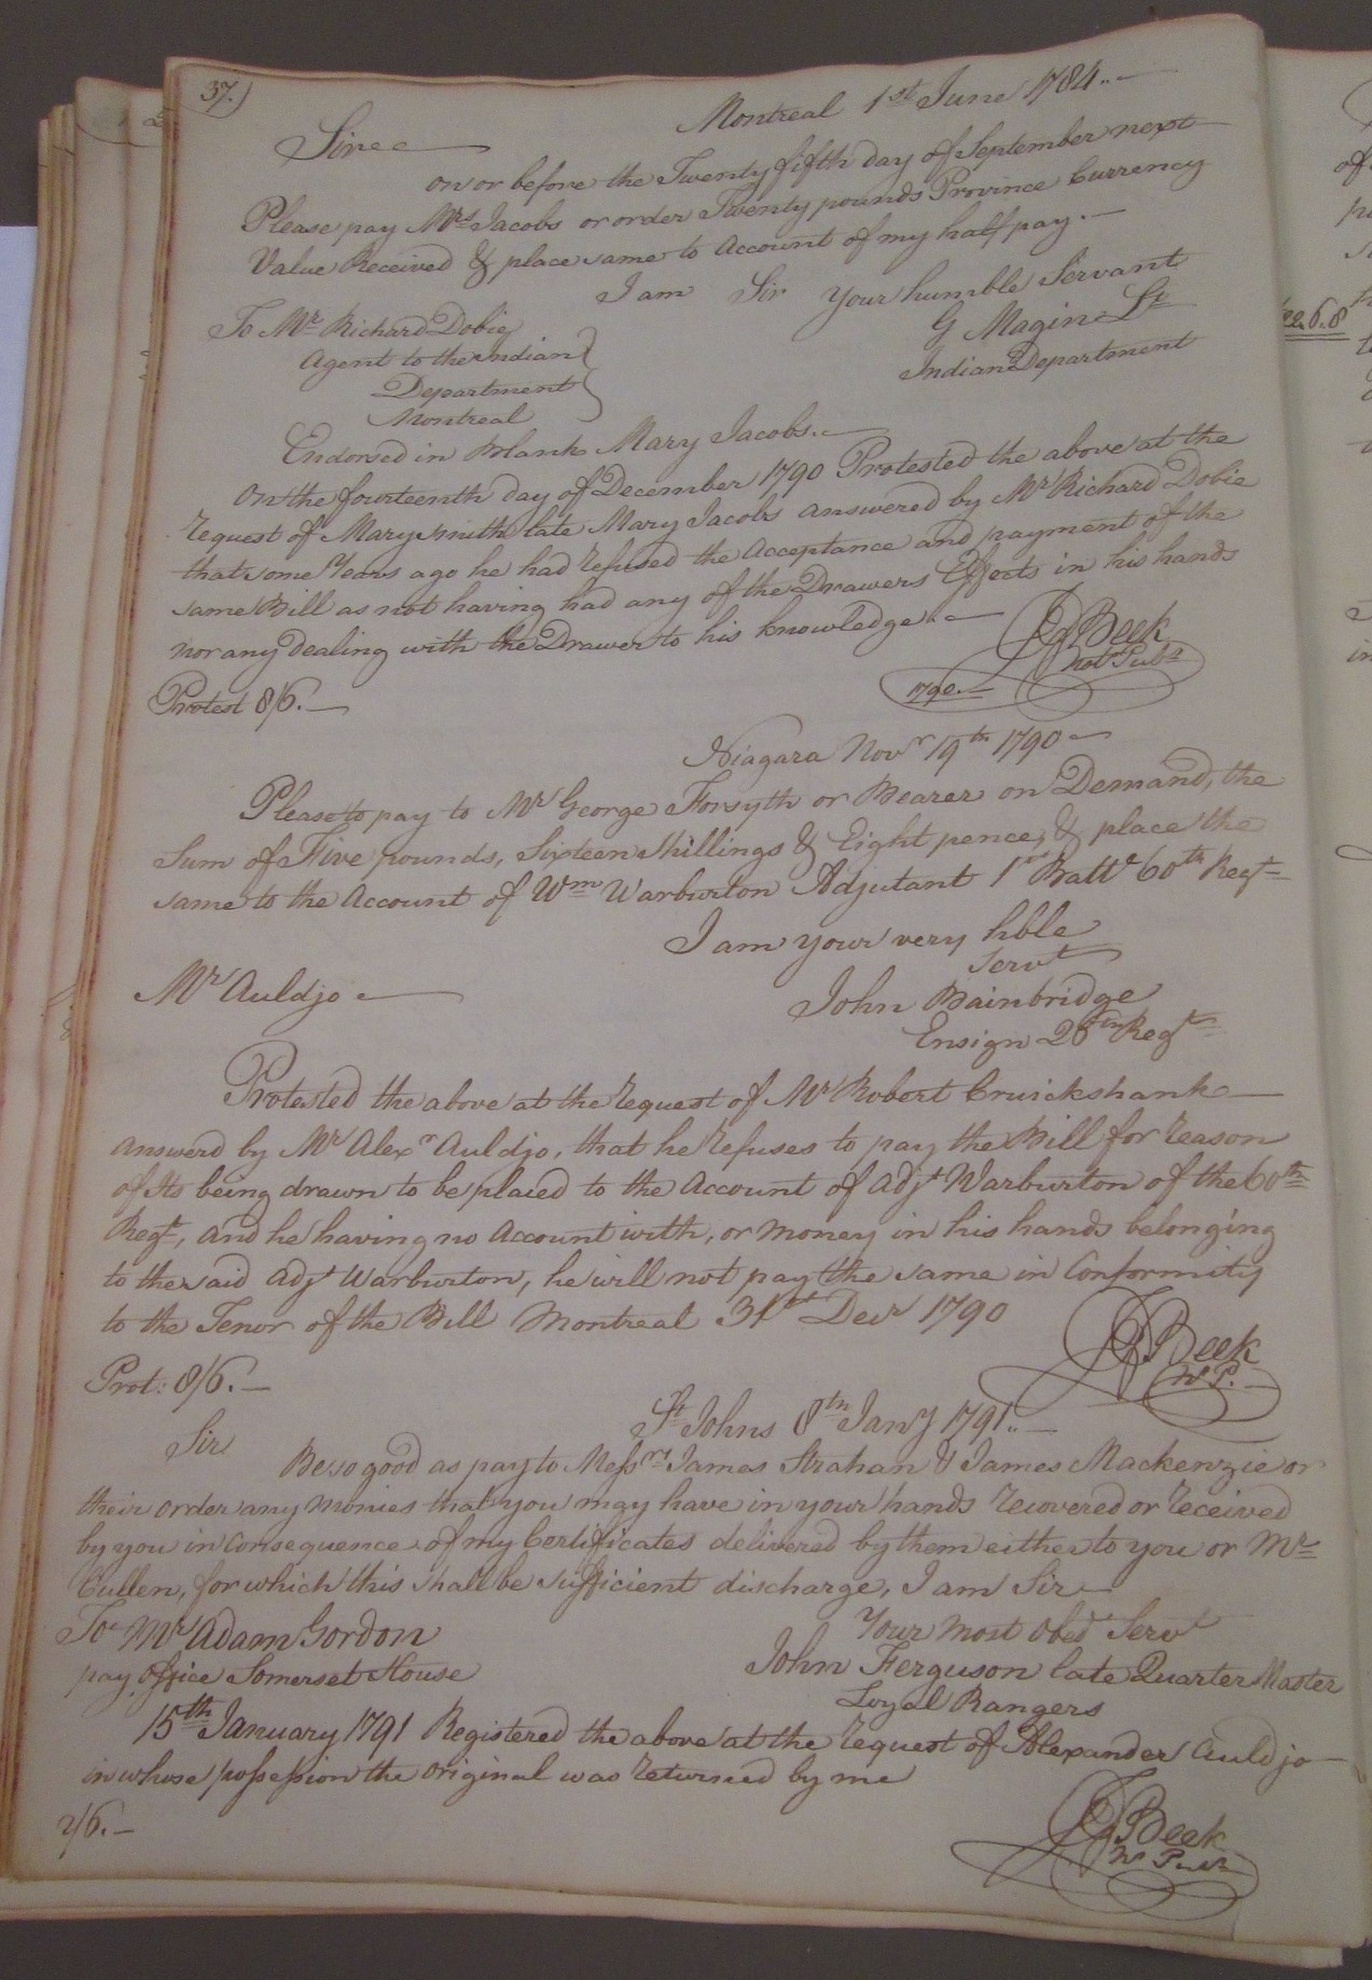 37.)
Montreal 1st June 1784..—
Sir
on or before the Twenty fifth day of September next
Please pay Mrs Jacobs or order Twenty pounds Province Currency
Value Received & place same to Account of my half pay.—
I am Sir Your humble Servant
To Mr Richard Dobie
G Magin Lt
Agent to the Indian
Indian Department
Department
Montreal
Endorsed in Blank Mary Jacobs.—
On the fourteenth day of December 1790 Protested the above at the
request of Mary Smith late Mary Jacobs answered by Mr Richard Dobie
that some Years ago he had refused the Acceptance and payment of the
same Bill as not having had any of the Drawers Effects in his hands
nor any Dealing with the Drawer to his knowledge.—
Beek
Not Pubs
1790.—
Protest 8/6.—
Niagara Novr 19th 1790—
Please to pay to Mr George Forsyth or Bearer on Demand, the
Sum of Five pounds, Sixteen Shillings & Eight pence, & place the
same to the Account of Wm Warburton Adjutant 1st Battn 60th Regt
I am your very hble
Servt
Mr Auldjo—
John Bainbridge
Ensign 26th Regt
Protested the above at the request of Mr Robert Cruickshank—
answerd by Mr Alexr Auldjo, that he refuses to pay the Bill for reason
of Its being drawn to be placed to the Account of Adjt Warburton of the 60th
Regt, and he having no Account with, or money in his hands belonging
to the said Adjt Warburton, he will not pay the same in Conformity
to the Tenor of the Bill Montreal 31st Decr 1790
Beek
N P.
Prot: 8/6.—
St Johns 8th Jany 1791..—
Sir
Be so good as pay to Messrs James Strahan & James Mackenzie or
their order any monies that you may have in your hands recovered or received
by you in Consequence of my Certificates delivered by them either to you or Mr
Cullen, for which this shall be sufficient discharge, I am Sir—
Your most Obedt Servt
To Mr Adam Gordon
John Ferguson late Quarter Master
pay office Somerset House
Loyal Rangers
15th January 1791 Registered the above at the request of Alexander Auldjo
in whose possession the original was returned by me
Beek
N Pub
2/6.—
22.6.8